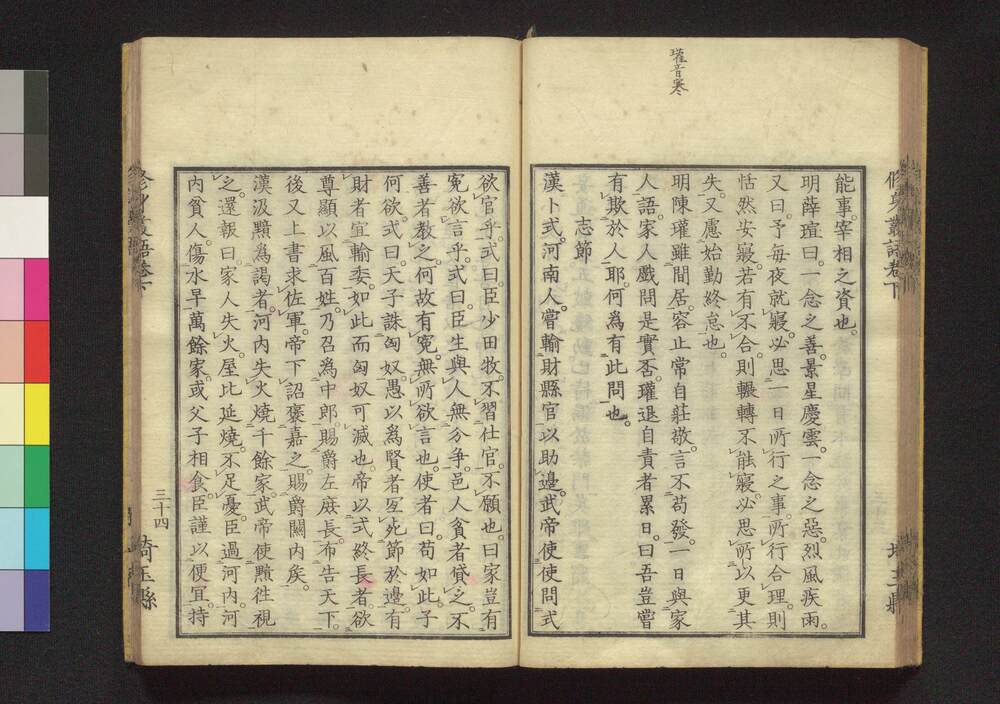 瓘音寒
能事。宰相之資也。
明薛瑄曰。一念之善。景星慶雲。一念之惡。烈風疾雨。
又曰。予每夜就寢。必思一日所行之事。所行合理。則
恬然安寢。若有不合。則輾轉不能寢。必思所以更其
失。又慮始勤終怠也。
明陳瓘雖間居。容止常自莊敬。言不苟發。一日與家
人語。家人戲問是實否。瓘退自責者累日。曰吾豈嘗
有欺於人耶。何為有此問也。
志節
漢卜式。河南人。嘗輸財縣官以助邊。武帝使使問式
欲官乎。式曰。臣少田牧。不習仕官。不願也。曰家豈有
冤。欲言乎。式曰。臣生與人無分爭。邑人貧者貸之。不
善者教之。何故有冤。無所欲言也。使者曰。苟如此。子
何欲。式曰。天子誅匈奴。愚以爲賢者宜死節於邊。有
財者宜輸委。如此而匈奴可滅也。帝以式終長者。欲
尊顯以風百姓。乃召爲中郎。賜爵左庶長。布告天下。
後又上書求佐軍。帝下詔褒嘉之。賜爵關內矦。
漢汲黯爲謁者。河內失火。燒千餘家。武帝使黯徃視
之。還報曰。家人失火。屋比延燒。不足憂。臣過河內。河
內貧人。傷水旱萬餘家。或父子相食。臣謹以便宜。持
三十四
埼玉縣
修身叢語卷下